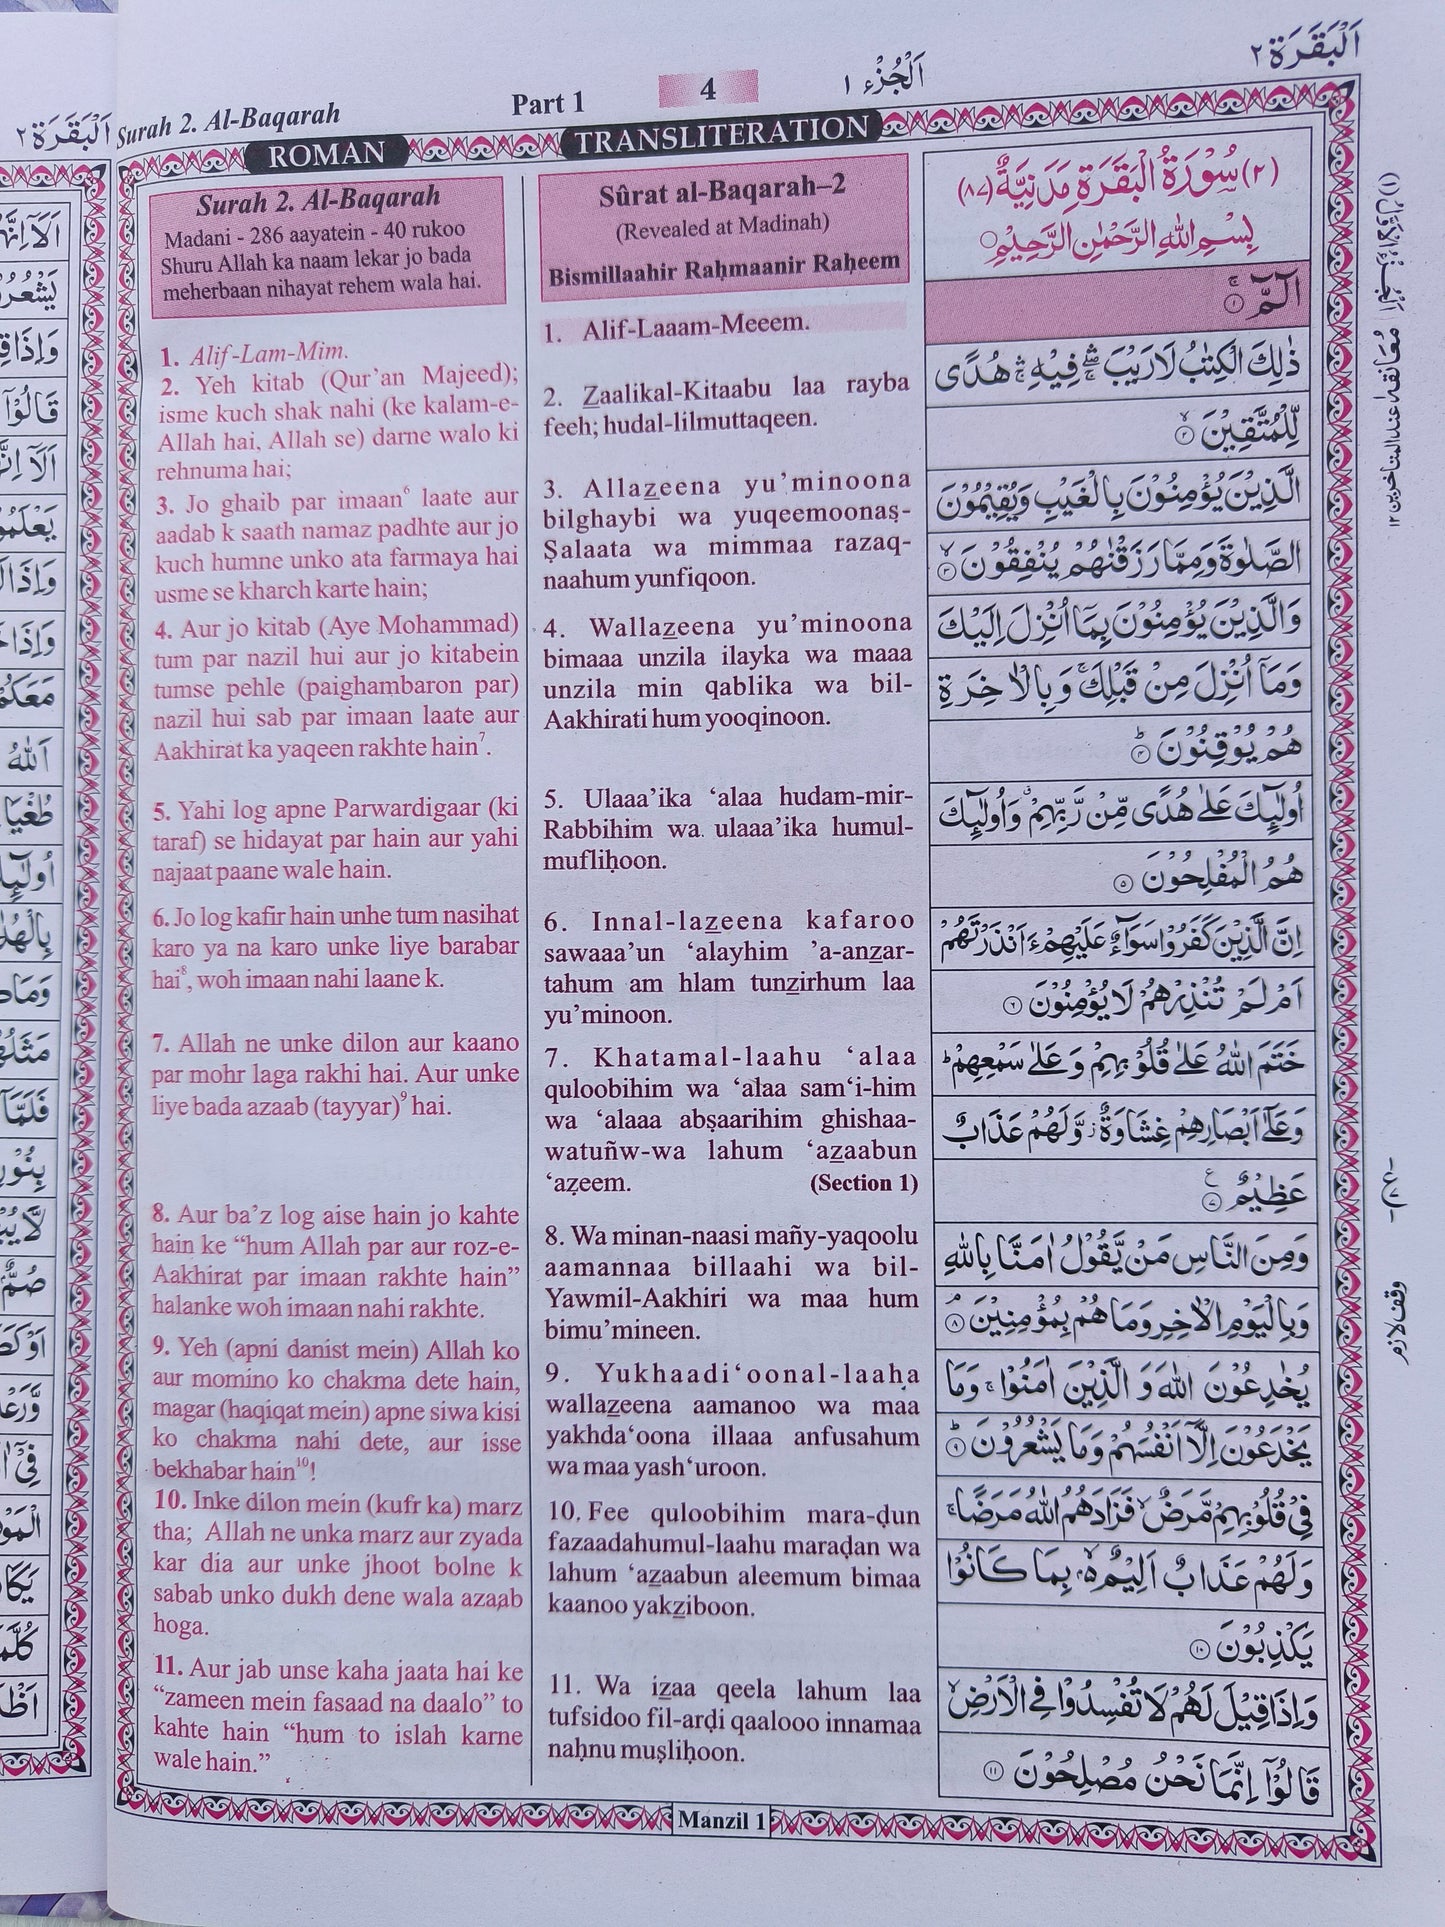 Surah 2. Al-Baqarah
Part 1
4
اَلْجُزْء ١
اَلْبَقَرَة ٢
اَلْبَقَرَة ٢
ROMAN
TRANSLITERATION
Surah 2. Al-Baqarah
Madani - 286 aayatein - 40 rukoo
Shuru Allah ka naam lekar jo bada
meherbaan nihayat rehem wala hai.
1. Alif-Lam-Mim.
2. Yeh kitab (Qur’an Majeed);
isme kuch shak nahi (ke kalam-e-
Allah hai, Allah se) darne walo ki
rehnuma hai;
3. Jo ghaib par imaan⁶ laate aur
aadab k saath namaz padhte aur jo
kuch humne unko ata farmaya hai
usme se kharch karte hain;
4. Aur jo kitab (Aye Mohammad)
tum par nazil hui aur jo kitabein
tumse pehle (paighambaron par)
nazil hui sab par imaan laate aur
Aakhirat ka yaqeen rakhte hain⁷.
5. Yahi log apne Parwardigaar (ki
taraf) se hidayat par hain aur yahi
najaat paane wale hain.
6. Jo log kafir hain unhe tum nasihat
karo ya na karo unke liye barabar
hai⁸, woh imaan nahi laane k.
7. Allah ne unke dilon aur kaano
par mohr laga rakhi hai. Aur unke
liye bada azaab (tayyar)⁹ hai.
8. Aur ba’z log aise hain jo kahte
hain ke “hum Allah par aur roz-e-
Aakhirat par imaan rakhte hain”
halanke woh imaan nahi rakhte.
9. Yeh (apni danist mein) Allah ko
aur momino ko chakma dete hain,
magar (haqiqat mein) apne siwa kisi
ko chakma nahi dete, aur isse
bekhabar hain¹⁰!
10. Inke dilon mein (kufr ka) marz
tha; Allah ne unka marz aur zyada
kar dia aur unke jhoot bolne k
sabab unko dukh dene wala azaab
hoga.
11. Aur jab unse kaha jaata hai ke
“zameen mein fasaad na daalo” to
kahte hain “hum to islah karne
wale hain.”
Sûrat al-Baqarah–2
(Revealed at Madinah)
Bismillaahir Raḥmaanir Raḥeem
1. Alif-Laaam-Meeem.
2. Z̲aalikal-Kitaabu laa rayba
feeh; hudal-lilmuttaqeen.
3. Allaz̲eena yu’minoona
bilghaybi wa yuqeemoonaṣ-
Ṣalaata wa mimmaa razaq-
naahum yunfiqoon.
4. Wallaz̲eena yu’minoona
bimaaa unzila ilayka wa maaa
unzila min qablika wa bil-
Aakhirati hum yooqinoon.
5. Ulaaa’ika ‘alaa hudam-mir-
Rabbihim wa ulaaa’ika humul-
mufliḥoon.
6. Innal-laz̲eena kafaroo
sawaaa’un ‘alayhim ’a-anz̲ar-
tahum am hlam tunz̲irhum laa
yu’minoon.
7. Khatamal-laahu ‘alaa
quloobihim wa ‘alaa sam‘i-him
wa ‘alaaa abṣaarihim ghishaa-
watuñw-wa lahum ‘az̲aabun
‘aẓeem. (Section 1)
8. Wa minan-naasi mañy-yaqoolu
aamannaa billaahi wa bil-
Yawmil-Aakhiri wa maa hum
bimu’mineen.
9. Yukhaadi‘oonal-laaḥa
wallaz̲eena aamanoo wa maa
yakhda‘oona illaaa anfusahum
wa maa yash‘uroon.
10. Fee quloobihim mara-ḍun
fazaadahumul-laahu maraḍan wa
lahum ‘az̲aabun aleemum bimaa
kaanoo yakz̲iboon.
11. Wa iz̲aa qeela lahum laa
tufsidoo fil-arḍi qaalooo innamaa
naḥnu muṣliḥoon.
(٢) سُوْرَةُ الْبَقَرَةِ مَدَنِيَّةٌ (٨٧)
بِسْمِ اللهِ الرَّحْمٰنِ الرَّحِيْمِ
الٓمّٓ ۚ ١
ذٰلِكَ الْكِتٰبُ لَا رَيْبَ ۛ فِيْهِ ۛ هُدًى
لِّلْمُتَّقِيْنَ ۙ ٢
الَّذِيْنَ يُؤْمِنُوْنَ بِالْغَيْبِ وَيُقِيْمُوْنَ
الصَّلٰوةَ وَمِمَّا رَزَقْنٰهُمْ يُنْفِقُوْنَ ۙ ٣
وَالَّذِيْنَ يُؤْمِنُوْنَ بِمَآ اُنْزِلَ اِلَيْكَ
وَمَآ اُنْزِلَ مِنْ قَبْلِكَ ۚ وَبِالْاٰخِرَةِ
هُمْ يُوْقِنُوْنَ ؕ ٤
اُولٰٓئِكَ عَلٰى هُدًى مِّنْ رَّبِّهِمْ ۙ وَاُولٰٓئِكَ
هُمُ الْمُفْلِحُوْنَ ٥
اِنَّ الَّذِيْنَ كَفَرُوْا سَوَآءٌ عَلَيْهِمْ ءَاَنْذَرْتَهُمْ
اَمْ لَمْ تُنْذِرْهُمْ لَا يُؤْمِنُوْنَ ٦
خَتَمَ اللهُ عَلٰى قُلُوْبِهِمْ وَعَلٰى سَمْعِهِمْ ؕ
وَعَلٰٓى اَبْصَارِهِمْ غِشَاوَةٌ ز وَّلَهُمْ عَذَابٌ
عَظِيْمٌ ٧
وَمِنَ النَّاسِ مَنْ يَّقُوْلُ اٰمَنَّا بِاللهِ
وَبِالْيَوْمِ الْاٰخِرِ وَمَا هُمْ بِمُؤْمِنِيْنَ ۘ ٨
يُخٰدِعُوْنَ اللهَ وَالَّذِيْنَ اٰمَنُوْا ۚ وَمَا
يَخْدَعُوْنَ اِلَّآ اَنْفُسَهُمْ وَمَا يَشْعُرُوْنَ ؕ ٩
فِيْ قُلُوْبِهِمْ مَّرَضٌ ۙ فَزَادَهُمُ اللهُ مَرَضًا ۚ
وَلَهُمْ عَذَابٌ اَلِيْمٌ ۢ ۙ بِمَا كَانُوْا
يَكْذِبُوْنَ ١٠
وَاِذَا قِيْلَ لَهُمْ لَا تُفْسِدُوْا فِي الْاَرْضِ ۙ
قَالُوْٓا اِنَّمَا نَحْنُ مُصْلِحُوْنَ ١١
معانقه ١ عند المتاخرين ١٢
وقف لازم
Manzil 1